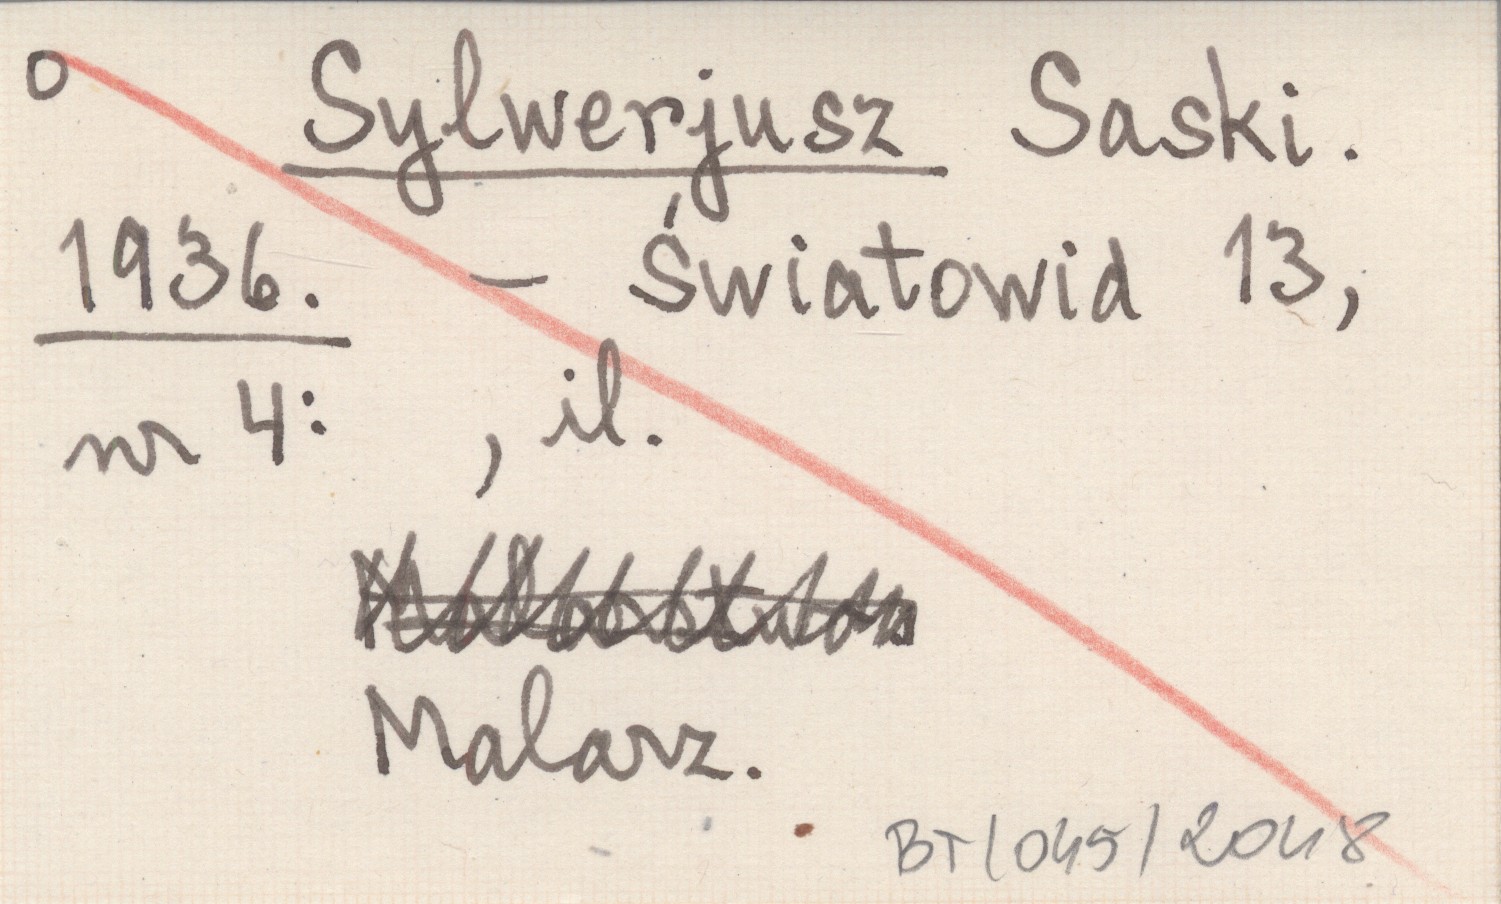 O Sylwerjusz Saski.
1936. – Światowid 13,
nr 4: , il.
Malarz.
BT/045/2048